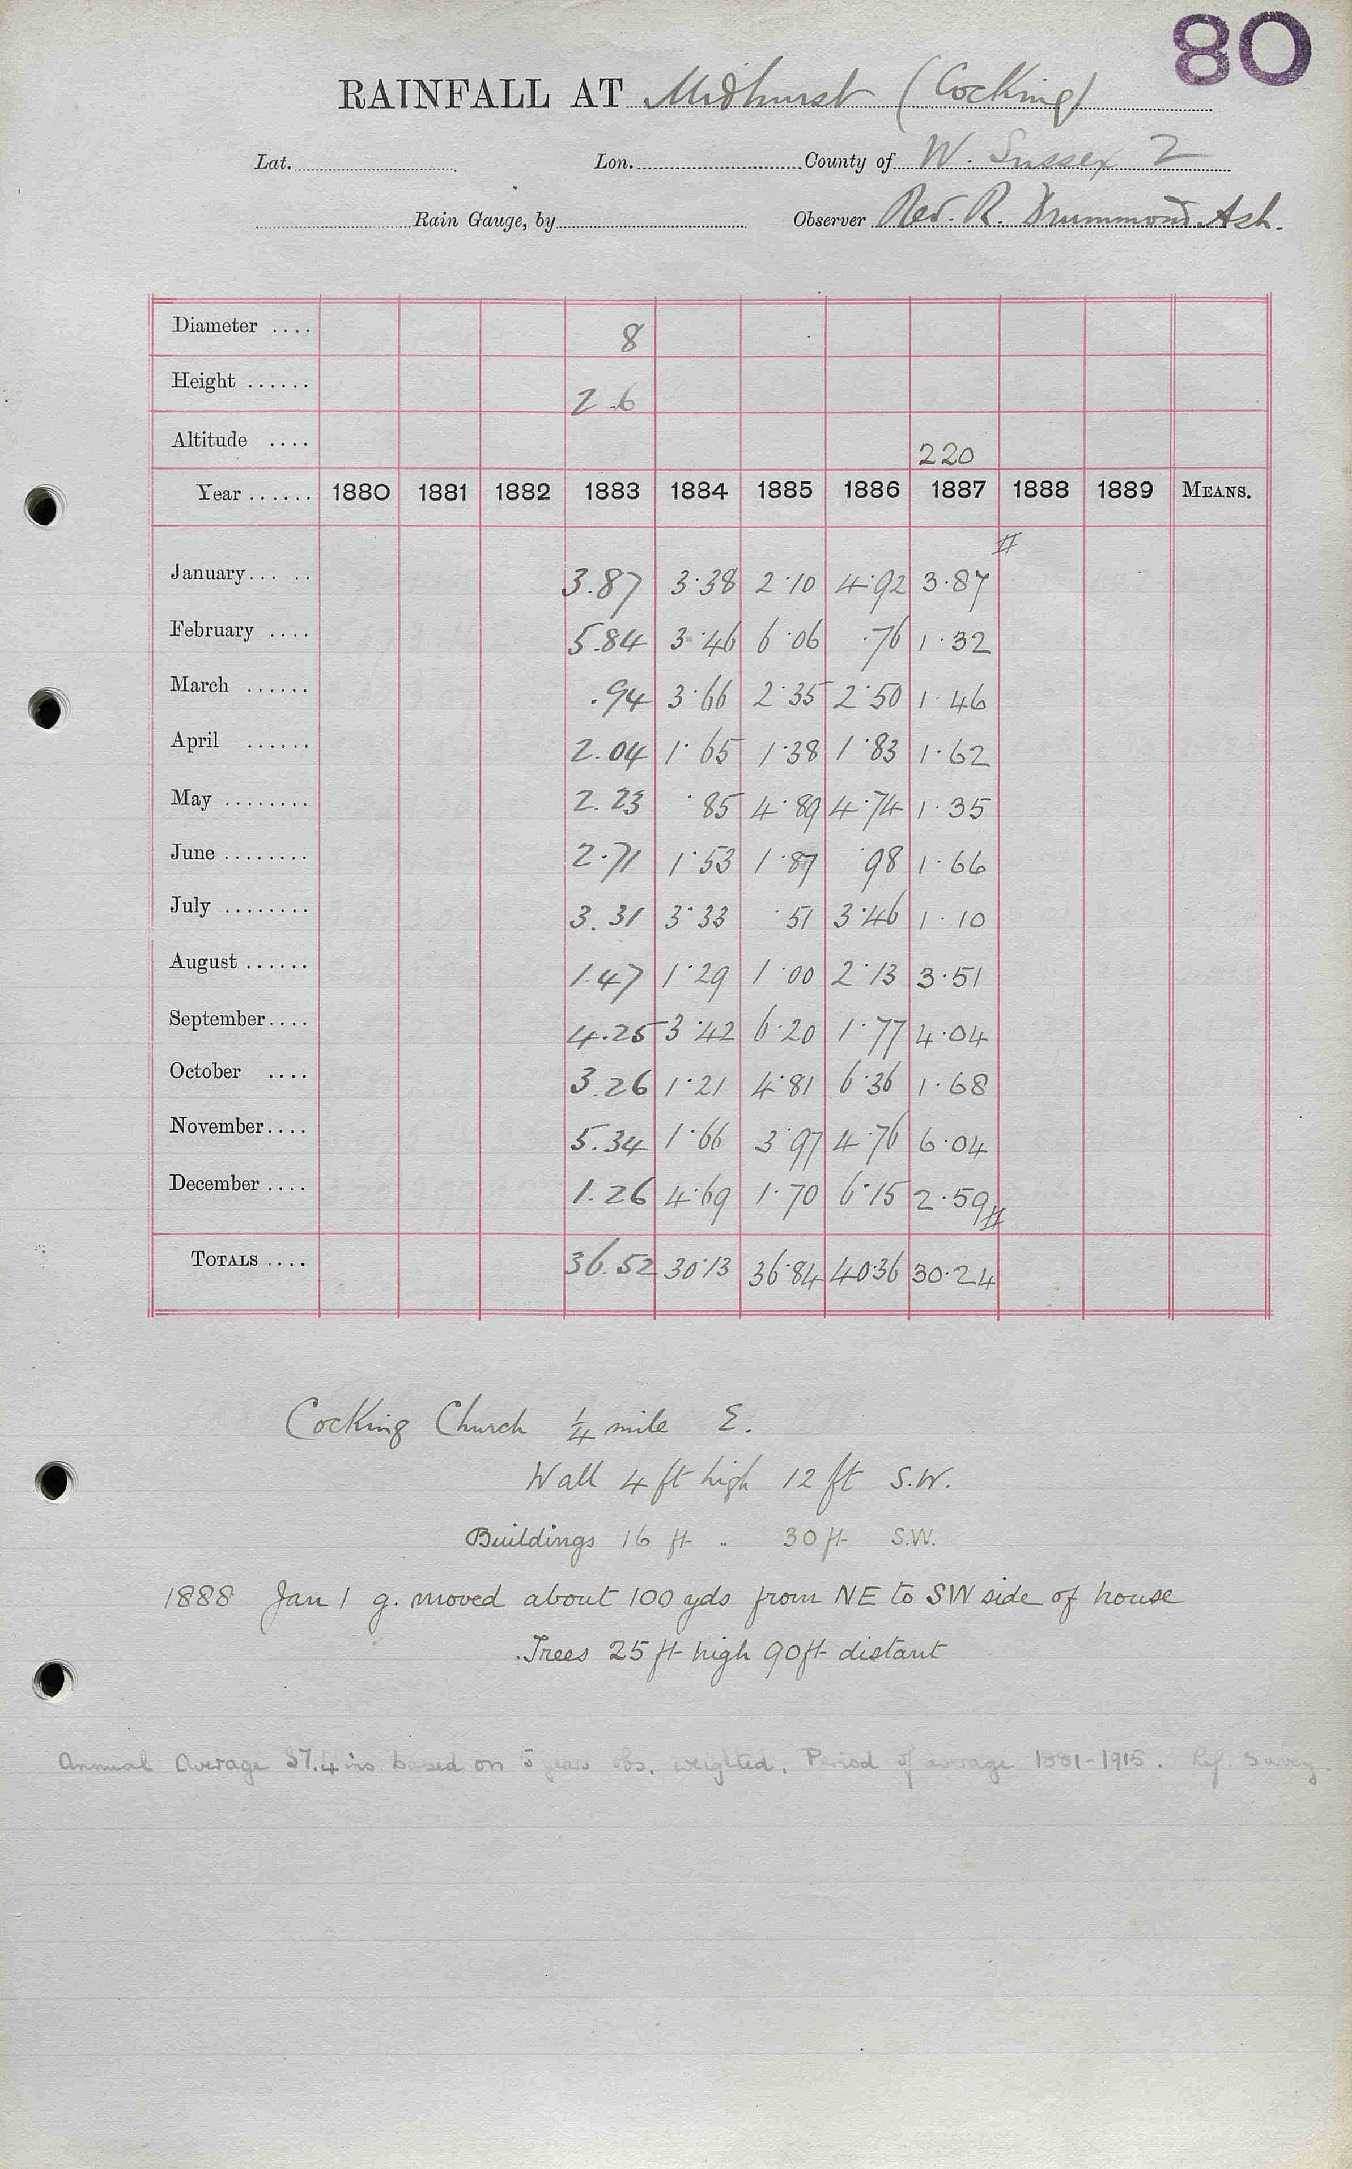 80
RAINFALL AT Midhurst (Cocking)
Lat. Lon. County of W. Sussex 2
Rain Gauge, by Observer Rev. R. Drummond Ash.
Diameter .... 8
Height ...... 2.6
Altitude .... 220
Year ...... 1880 1881 1882 1883 1884 1885 1886 1887 1888 1889 MEANS.
#
January...... 3.87 3.38 2.10 4.92 3.87
February .... 5.84 3.46 6.06 .76 1.32
March ...... .94 3.66 2.35 2.50 1.46
April ...... 2.04 1.65 1.38 1.83 1.62
May ........ 2.23 .85 4.89 4.74 1.35
June ........ 2.71 1.53 1.87 .98 1.66
July ........ 3.31 3.33 .51 3.46 1.10
August ...... 1.47 1.29 1.00 2.13 3.51
September.... 4.25 3.42 6.20 1.77 4.04
October .... 3.26 1.21 4.81 6.36 1.68
November.... 5.34 1.66 3.97 4.76 6.04
December .... 1.26 4.69 1.70 6.15 2.59 #
TOTALS .... 36.52 30.13 36.84 40.36 30.24
Cocking Church ¼ mile E.
Wall 4 ft high 12 ft S.W.
Buildings 16 ft " 30 ft S.W.
1888 Jan 1 g. moved about 100 yds from NE to SW side of house
Trees 25 ft high 90 ft distant
Annual Average 37.4 ins based on 5 years obs. weighted. Period of average 1881-1915. Ref. Survey.